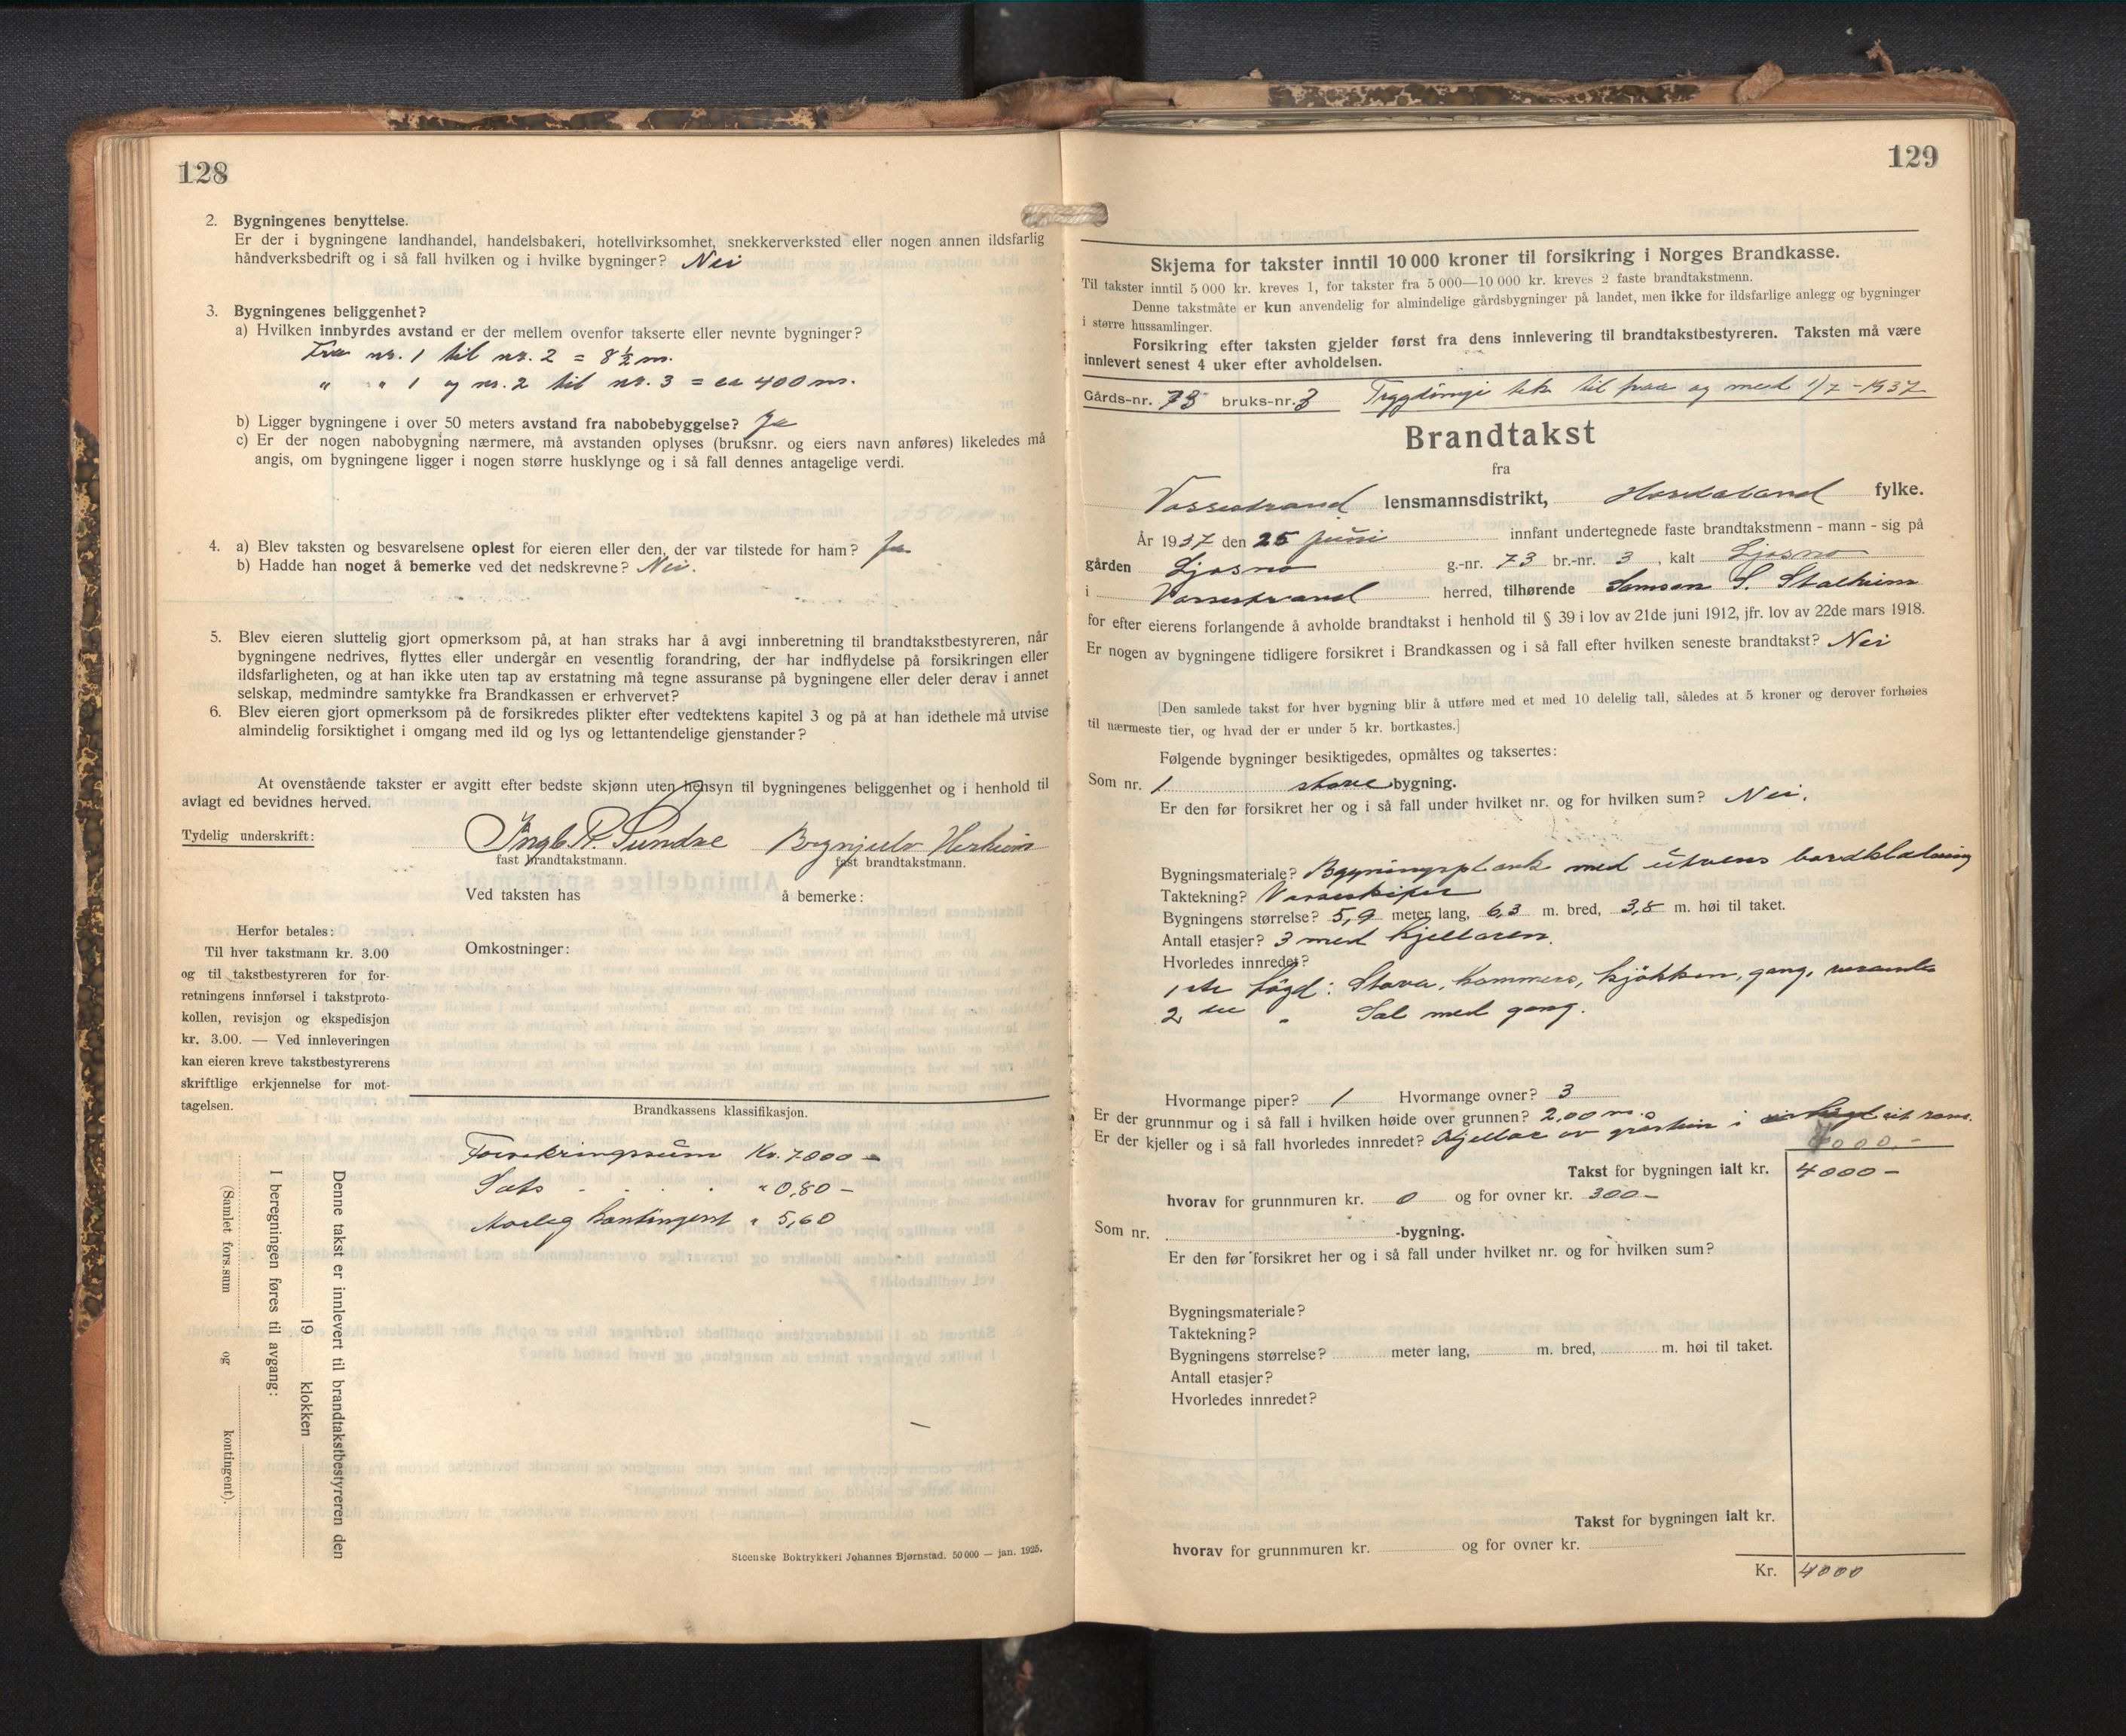 128
2. Bygningenes benyttelse.
Er der i bygningene landhandel, handelsbakeri, hotellvirksomhet, snekkerverksted eller nogen annen ildsfarlig
håndverksbedrift og i så fall hvilken og i hvilke bygninger? Nei
3. Bygningenes beliggenhet?
a) Hvilken innbyrdes avstand er der mellem ovenfor takserte eller nevnte bygninger?
Fra nr. 1 til nr. 2 = 8 1/2 m.
" " 1 og nr. 2 til nr. 3 = ca 400 m.
b) Ligger bygningene i over 50 meters avstand fra nabobebyggelse? Ja
c) Er der nogen nabobygning nærmere, må avstanden oplyses (bruksnr. og eiers navn anføres) likeledes må
angis, om bygningene ligger i nogen større husklynge og i så fall dennes antagelige verdi.
4. a) Blev taksten og besvarelsene oplest for eieren eller den, der var tilstede for ham? Ja
b) Hadde han noget å bemerke ved det nedskrevne? Nei.
5. Blev eieren sluttelig gjort opmerksom på, at han straks har å avgi innberetning til brandtakstbestyreren, når
bygningene nedrives, flyttes eller undergår en vesentlig forandring, der har indflydelse på forsikringen eller
ildsfarligheten, og at han ikke uten tap av erstatning må tegne assuranse på bygningene eller deler derav i annet
selskap, medmindre samtykke fra Brandkassen er erhvervet?
6. Blev eieren gjort opmerksom på de forsikredes plikter efter vedtektens kapitel 3 og på at han idethele må utvise
almindelig forsiktighet i omgang med ild og lys og lettantendelige gjenstander?
At ovenstående takster er avgitt efter bedste skjønn uten hensyn til bygningenes beliggenhet og i henhold til
avlagt ed bevidnes herved.
Tydelig underskrift: Ingb. R. Sundve Brynjulv Herheim
fast brandtakstmann. fast brandtakstmann.
Ved taksten has å bemerke:
Herfor betales:
Til hver takstmann kr. 3.00
og til takstbestyreren for for-
retningens innførsel i takstproto-
kollen, revisjon og ekspedisjon
kr. 3.00. — Ved innleveringen
kan eieren kreve takstbestyrerens
skriftlige erkjennelse for mot-
tagelsen.
Omkostninger:
Brandkassens klassifikasjon.
Forsikringssum Kr. 7000 -
Sats " 0,80 -
Aarleg kontingent " 5,60
Denne takst er innlevert til brandtakstbestyreren den
19 klokken
I beregningen føres til avgang:
(Samlet fors.sum og kontingent).
Steenske Boktrykkeri Johannes Bjørnstad. 50 000 — jan. 1925.
129
Skjema for takster inntil 10 000 kroner til forsikring i Norges Brandkasse.
Til takster inntil 5 000 kr. kreves 1, for takster fra 5 000—10 000 kr. kreves 2 faste brandtakstmenn.
Denne takstmåte er kun anvendelig for almindelige gårdsbygninger på landet, men ikke for ildsfarlige anlegg og bygninger
i større hussamlinger.
Forsikring efter taksten gjelder først fra dens innlevering til brandtakstbestyreren. Taksten må være
innlevert senest 4 uker efter avholdelsen.
Gårds-nr. 73 bruks-nr. 3 Trygdingi tek til fraa og med 1/7 - 1937
Brandtakst
fra
Vossestrand lensmannsdistrikt, Hordaland fylke.
År 1937 den 25 juni innfant undertegnede faste brandtakstmenn - mann - sig på
gården Ljosno g.-nr. 73 br.-nr. 3, kalt Ljosno
i Vossestrand herred, tilhørende Samson S. Stalheim
for efter eierens forlangende å avholde brandtakst i henhold til § 39 i lov av 21de juni 1912, jfr. lov av 22de mars 1918.
Er nogen av bygningene tidligere forsikret i Brandkassen og i så fall efter hvilken seneste brandtakst? Nei
[Den samlede takst for hver bygning blir å utføre med et med 10 delelig tall, således at 5 kroner og derover forhøies
til nærmeste tier, og hvad der er under 5 kr. bortkastes.]
Følgende bygninger besiktigedes, opmåltes og taksertes:
Som nr. 1 stove bygning.
Er den før forsikret her og i så fall under hvilket nr. og for hvilken sum? Nei.
Bygningsmateriale? Bygningsplank med utvens bordklædning
Taktekning? Vosseskifer
Bygningens størrelse? 5,9 meter lang, 6,3 m. bred, 3,8 m. høi til taket.
Antall etasjer? 3 med kjellaren.
Hvorledes innredet?
1ste høgd: Stova, kammers, kjökken, gang,
2 dre " Sal med gang.
Hvormange piper? 1 Hvormange ovner? 3
Er der grunnmur og i så fall i hvilken høide over grunnen? 2,00 m.
Er der kjeller og i så fall hvorledes innredet? Kjellar av gråstein i eit rom.
4000.-
Takst for bygningen ialt kr. 4000 -
hvorav for grunnmuren kr. 0 og for ovner kr. 300 -
Som nr. -bygning.
Er den før forsikret her og i så fall under hvilket nr. og for hvilken sum?
Bygningsmateriale?
Taktekning?
Bygningens størrelse? meter lang, m. bred, m. høi til taket.
Antall etasjer?
Hvorledes innredet?
Takst for bygningen ialt kr.
hvorav for grunnmuren kr. og for ovner kr.
Kr. 4000